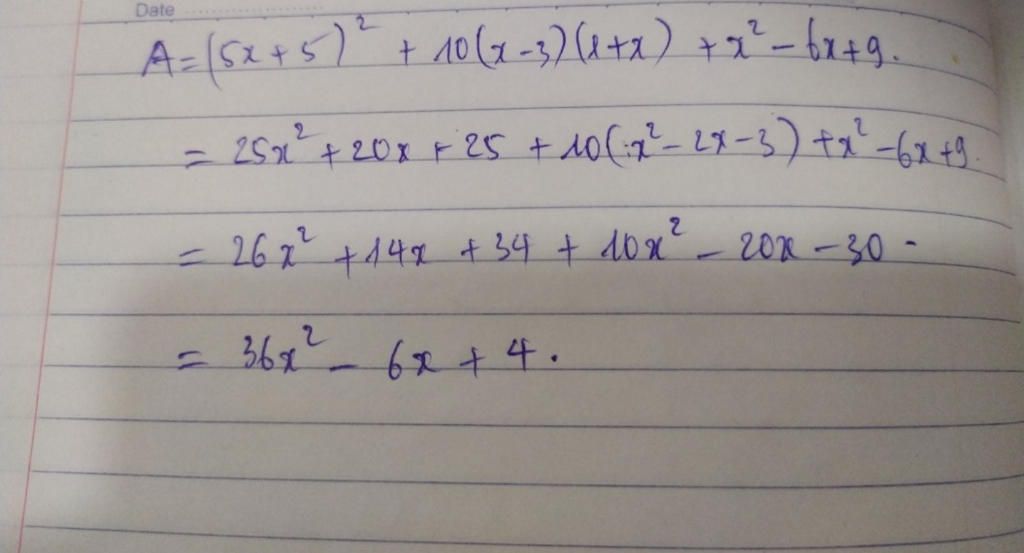 Date
A = (5x + 5)² + 10(x - 3)(1 + x) + x² - 6x + 9.
= 25x² + 20x + 25 + 10(x² - 2x - 3) + x² - 6x + 9.
= 26x² + 14x + 34 + 10x² - 20x - 30.
= 36x² - 6x + 4.